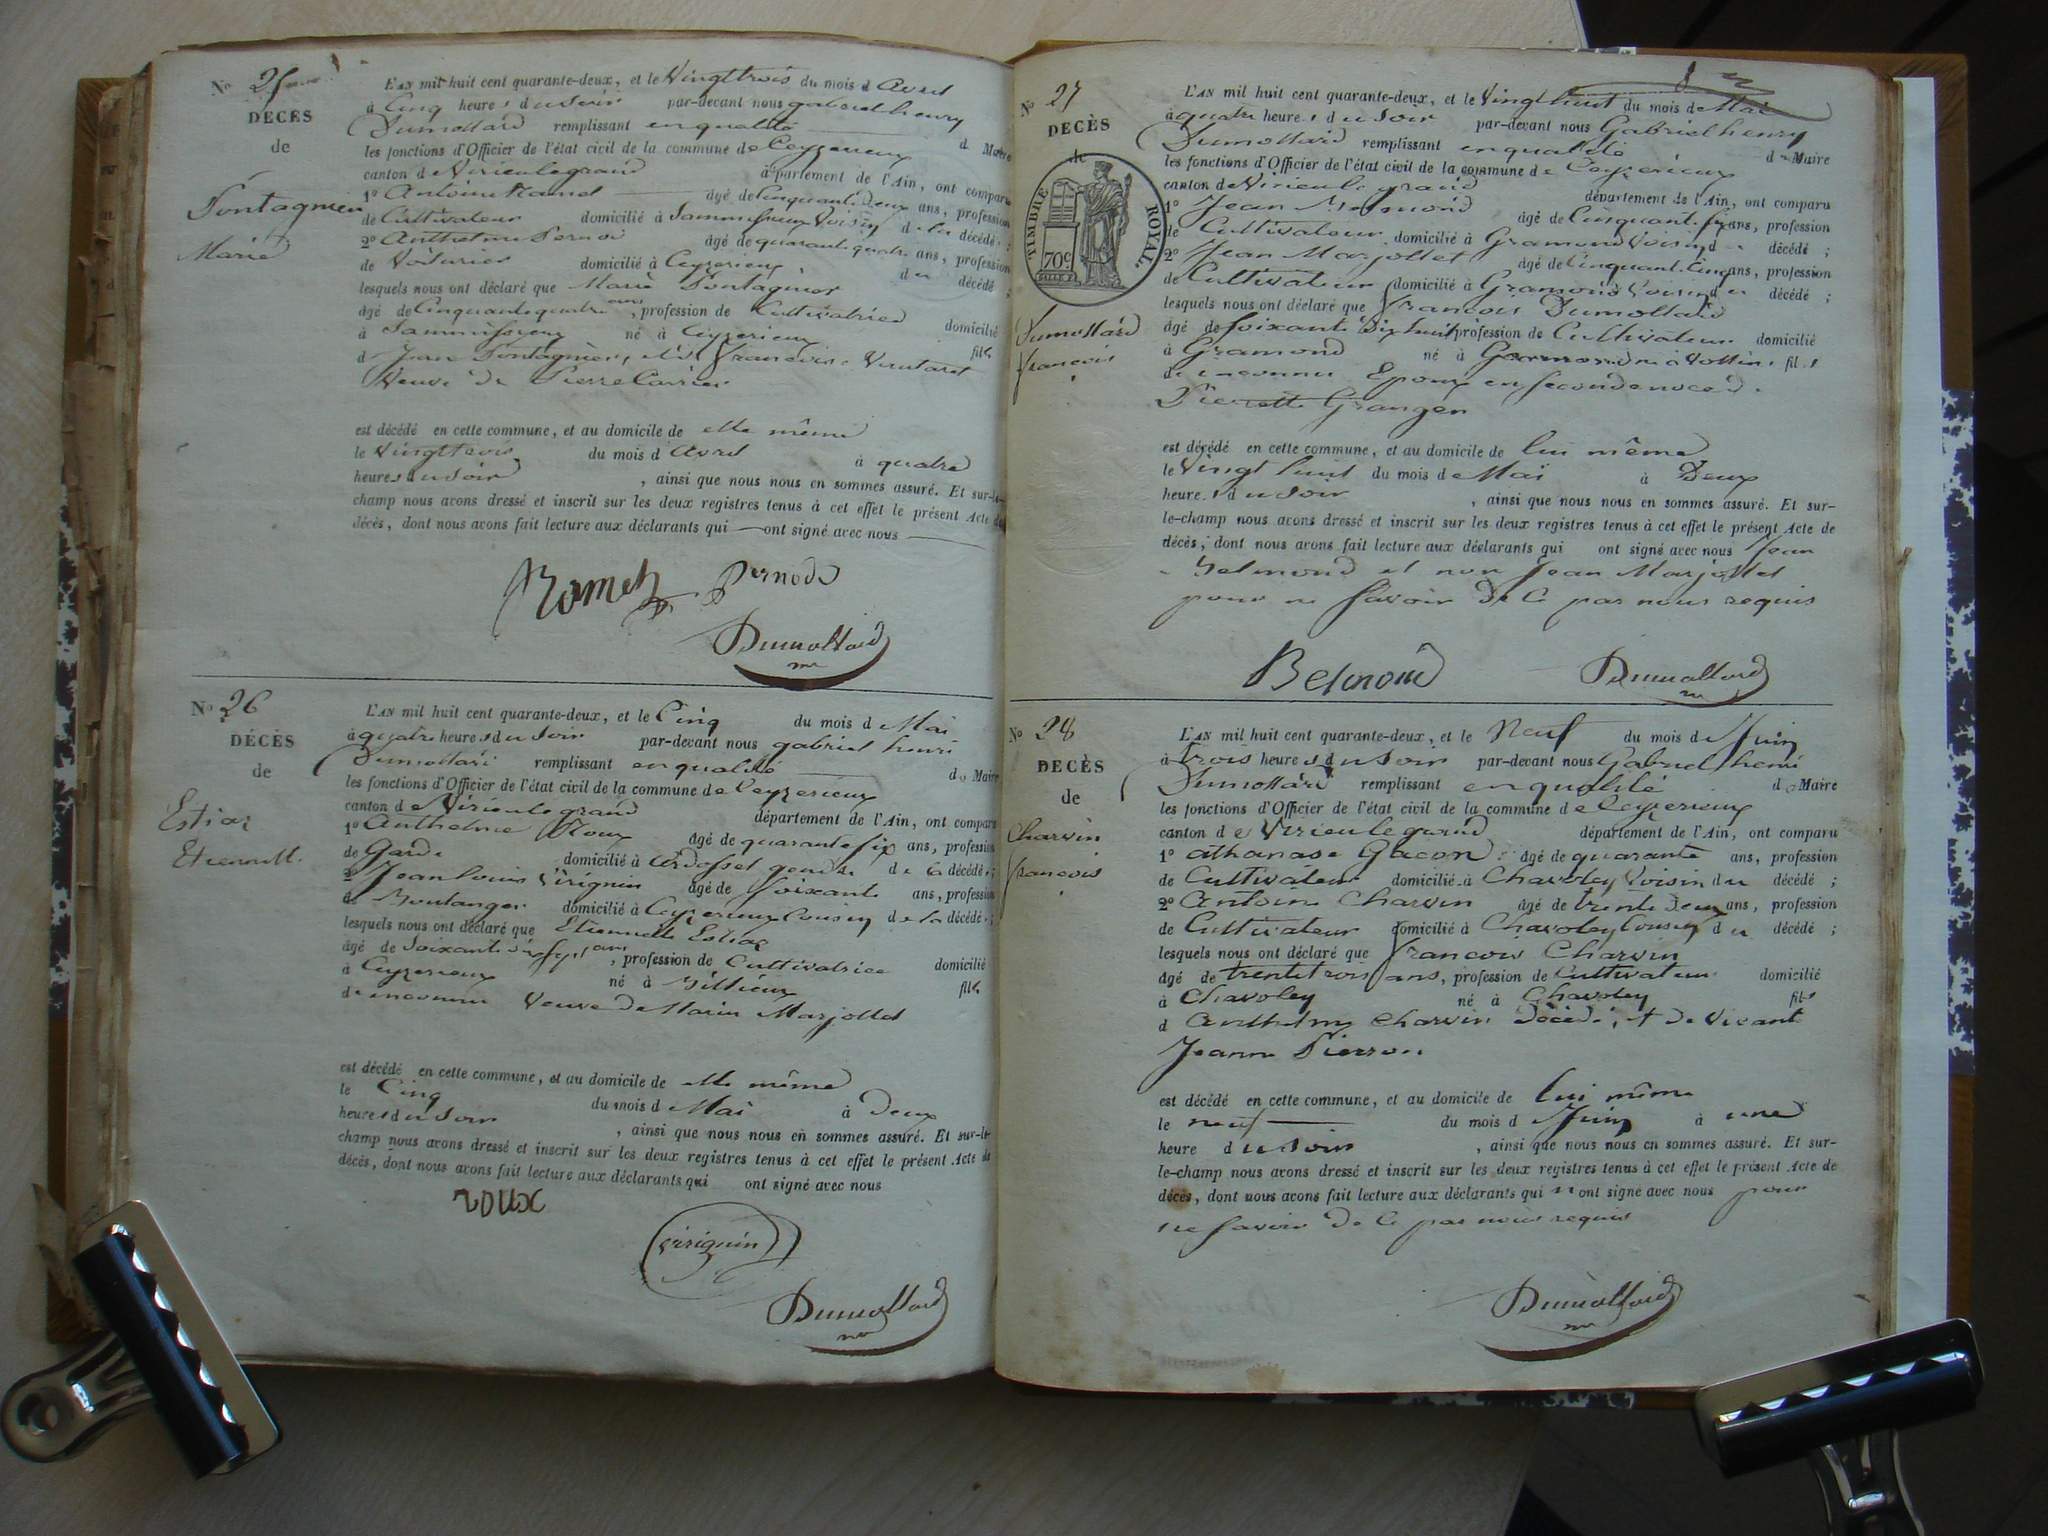 No 25
DÉCÈS
de
Pontagnier
Marie
L'AN mil huit cent quarante-deux, et le Vingt trois du mois d Avril
à Cinq heures du soir par-devant nous gabriel henry
Dumollard remplissant en qualité d Maire
les fonctions d'Officier de l'état civil de la commune de Ceyzerieux
canton de Virieu le grand département de l'Ain, ont comparu
1o Antoine Ramel âgé de Cinquante deux ans, profession
de Cultivateur domicilié à voisin de la décédée ;
2o Anthelme Pernod âgé de quarante quatre ans, profession
de Voiturier domicilié à Ceyzerieux décédé ;
lesquels nous ont déclaré que Marie Pontagnier
âgé de Cinquante quatre ans, profession de Cultivatrice domicilié
à né à Ceyzerieux fille
d Jean Pontagnier, et de Françoise
Veuve de Pierre Carrier
est décédé en cette commune, et au domicile de elle même
le Vingt trois du mois d Avril à quatre
heures du soir , ainsi que nous nous en sommes assuré. Et sur-le-
champ nous avons dressé et inscrit sur les deux registres tenus à cet effet le présent Acte de
décès, dont nous avons fait lecture aux déclarants qui ont signé avec nous
Ramel Pernod
Dumollard
No 26
DÉCÈS
de
Estiaz
Etiennette
L'AN mil huit cent quarante-deux, et le Cinq du mois d Mai
à quatre heures du soir par-devant nous gabriel henri
Dumollard remplissant en qualité de Maire
les fonctions d'Officier de l'état civil de la commune de Ceyzerieux
canton de Virieu le grand département de l'Ain, ont comparu
1o Anthelme Roux âgé de quarante six ans, profession
de Garde domicilié à Ardosset gendre de la décédée ;
2o Jean louis Virignin âgé de soixante ans, profession
de Boulanger domicilié à Ceyzerieux Cousin de la décédée ;
lesquels nous ont déclaré que Etiennette Estiaz
âgé de soixante dix sept ans, profession de Cultivatrice domicilié
à Ceyzerieux né à Billieux fille
de inconnu Veuve de Marin Marjollet
est décédé en cette commune, et au domicile de elle même
le Cinq du mois d Mai à Deux
heures du soir , ainsi que nous nous en sommes assuré. Et sur-le-
champ nous avons dressé et inscrit sur les deux registres tenus à cet effet le présent Acte de
décès, dont nous avons fait lecture aux déclarants qui ont signé avec nous
roux
virignin
Dumollard
No 27
DECÈS
de
TIMBRE ROYAL
70c
Dumollard
françois
L'AN mil huit cent quarante-deux, et le Vingt huit du mois de Mai
à quatre heures du soir par-devant nous Gabriel henry
Dumollard remplissant en qualité de Maire
les fonctions d'Officier de l'état civil de la commune de Ceyzerieux
canton de Virieu le grand département de l'Ain, ont comparu
1o Jean Belmond âgé de Cinquante six ans, profession
de Cultivateur domicilié à Gramond Voisin d décédé ;
2o Jean Marjollet âgé de Cinquante Cinq ans, profession
de Cultivateur domicilié à Gramond Voisin du décédé ;
lesquels nous ont déclaré que françois Dumollard
âgé de soixante Dix huit profession de Cultivateur domicilié
à Gramond né à fils
de inconnu Epoux en seconde noce de
Pierrette Granger
est décédé en cette commune, et au domicile de lui même
le Vingt huit du mois de Mai à Deux
heures du soir , ainsi que nous nous en sommes assuré. Et sur-
le-champ nous avons dressé et inscrit sur les deux registres tenus à cet effet le présent Acte de
décès, dont nous avons fait lecture aux déclarants qui ont signé avec nous Jean
Belmond et non Jean Marjollet
pour ne savoir de ce par nous requis
Belmond Dumollard
No 28
DECÈS
de
Charvin
françois
L'AN mil huit cent quarante-deux, et le Neuf du mois de Juin
à trois heures du soir par-devant nous Gabriel henri
Dumollard remplissant en qualité de Maire
les fonctions d'Officier de l'état civil de la commune de Ceyzerieux
canton de Virieu le grand département de l'Ain, ont comparu
1o athanase Gacon âgé de quarante ans, profession
de Cultivateur domicilié à Chavoley Voisin du décédé ;
2o Antoine Charvin âgé de trente deux ans, profession
de Cultivateur domicilié à Chavoley Cousin du décédé ;
lesquels nous ont déclaré que françois Charvin
âgé de trente trois ans, profession de Cultivateur domicilié
à Chavoley né à Chavoley fils
d Anthelme Charvin décédé, et de Vivante
Jeanne Pierron
est décédé en cette commune, et au domicile de lui même
le neuf du mois d Juin à une
heure du soir , ainsi que nous nous en sommes assuré. Et sur-
le-champ nous avons dressé et inscrit sur les deux registres tenus à cet effet le présent Acte de
décès, dont nous avons fait lecture aux déclarants qui n'ont signé avec nous pour
ne savoir de ce par nous requis
Dumollard